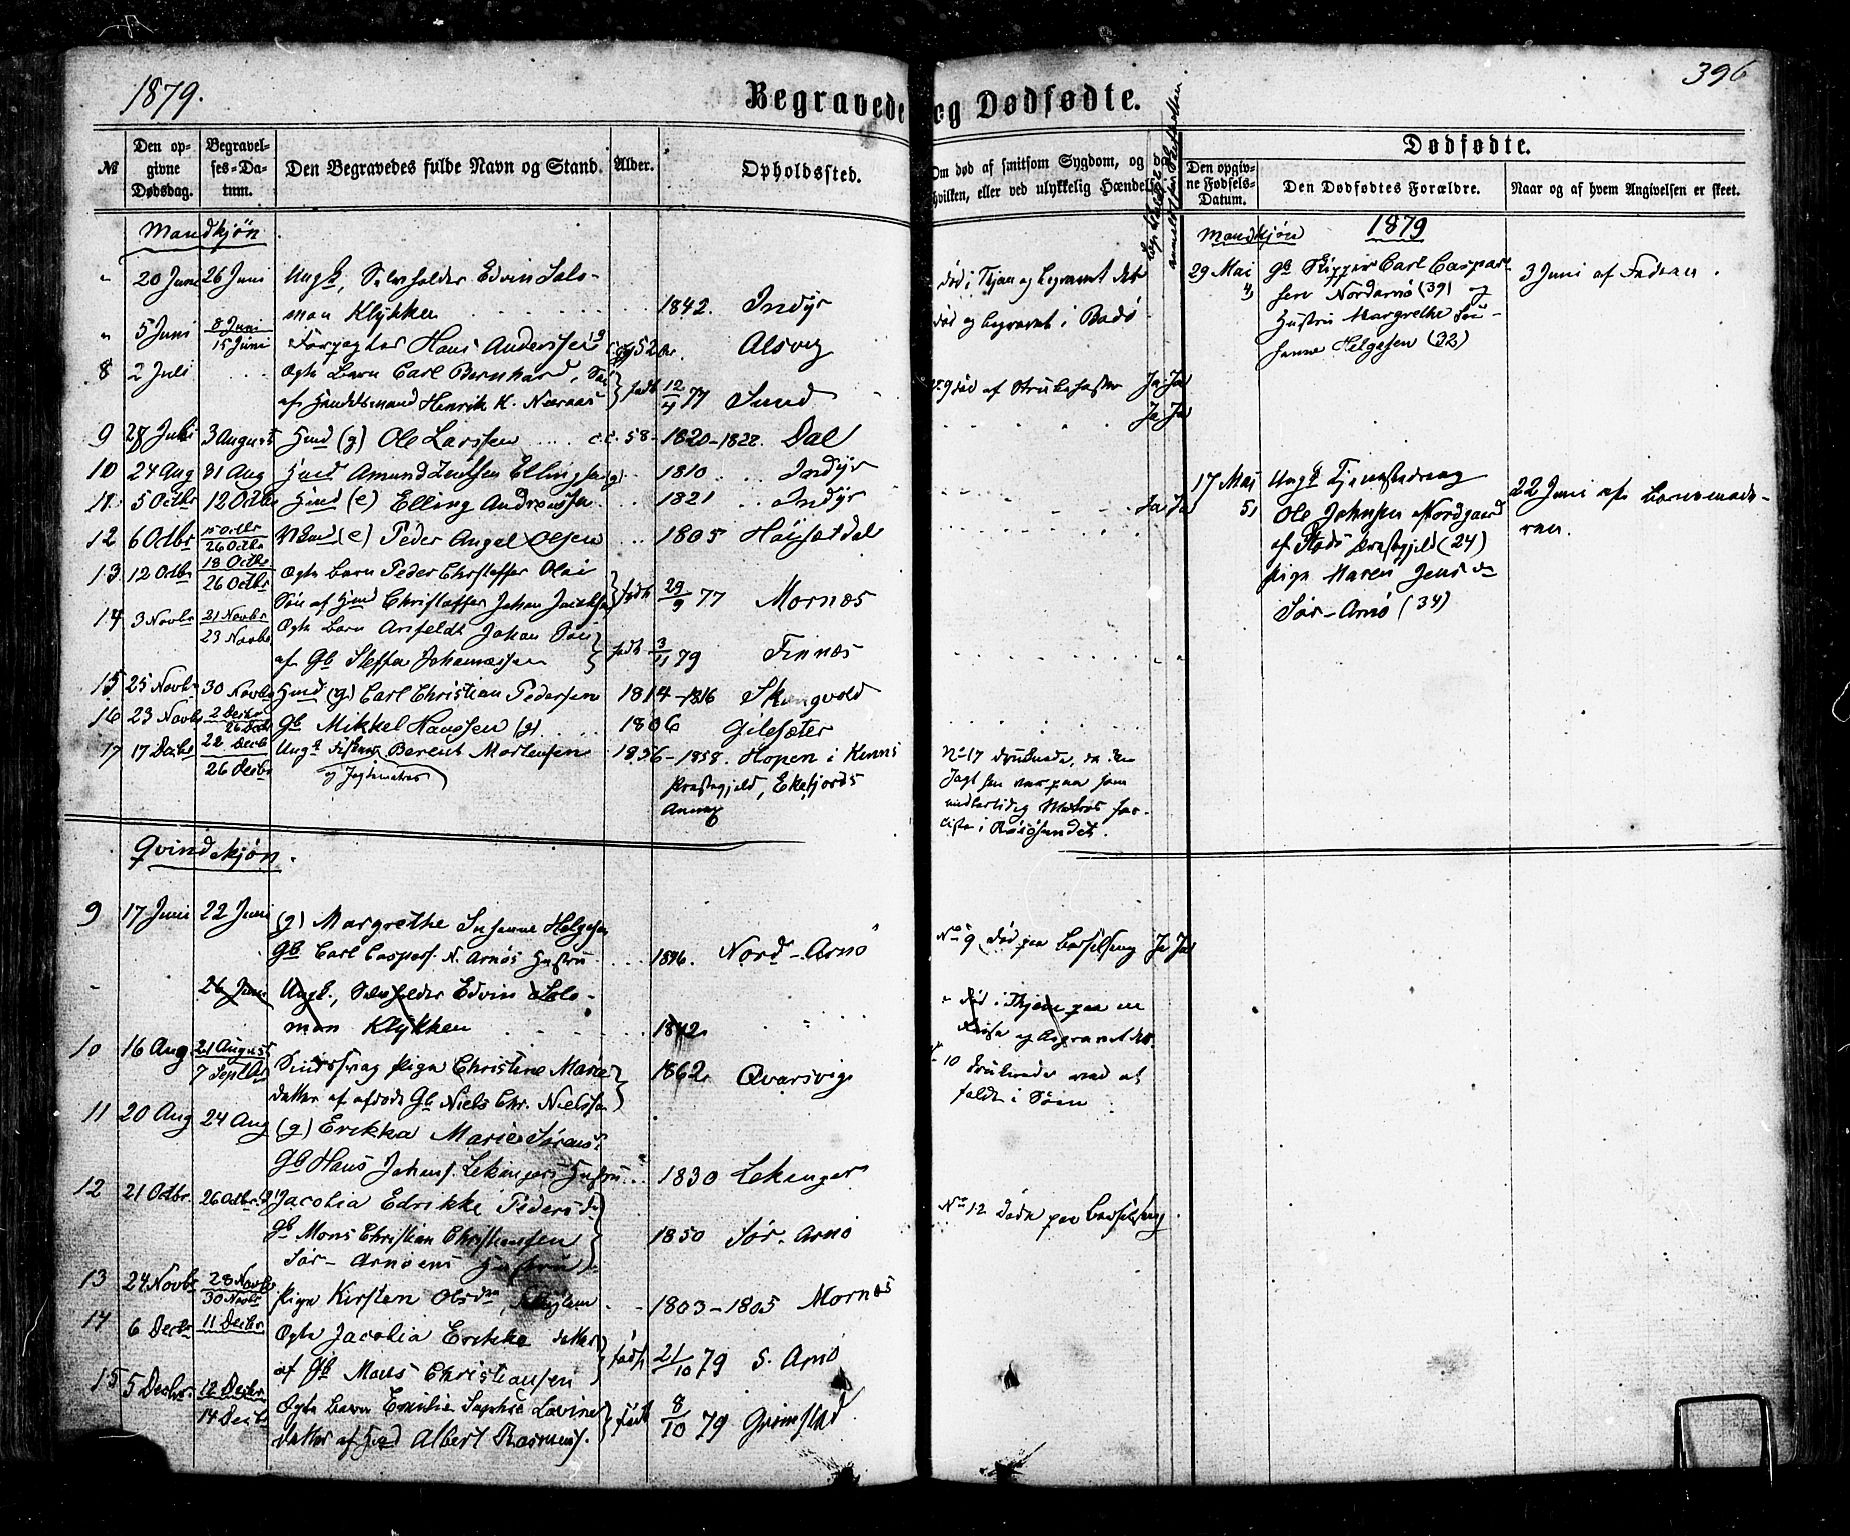 1879.
Begravede og Dødfødte.
396
№
Den opgivne Dødsdag.
Begravelses-Datum.
Den Begravedes fulde Navn og Stand.
Alder.
Opholdssted.
Om død af smitsom Sygdom, og
hvilken, eller ved ulykkelig Hændelse
Dødfødte.
Den opgivne Fødsels-Datum.
Den Dødfødtes Forældre.
Naar og af hvem Angivelsen er skeet.
Mandkjøn
20 Juni 26 Juni Ungk, Edvin Salo-
mon Klykken 1842. Indyr
død i Thjøn og begravet der
5 Juni 8 Juni
15 Juni Forpagter Hans Anderssen 52 Aar. Alsvig
død og begravet i Bodø
8 2 Juli Ægte Barn Carl Bernhard, Søn
af Handelsmand Henrik K. Næraas født 12/4 77 Sund
No 9 død af Strubehoste Ja Ja
Ja Ja
9 28 Juli 3 August Hmd (g) Ole Larssen c. c. 58 - 1820-1822. Dal
10 24 Aug 31 Aug Hmd Amund Ellingsen (g) 1810 Indyr
11 5 Octbr 12 Octbr Hmd (e) Elling Andreassen 1821 Indyr
Ja Ja
12 6 Octbr 15 Octbr
26 Octbr (e) Peder Angel Olsen 1805 Høisetdal
13 12 Octbr 18 Octbr
26 Octbr Ægte Barn Peder Christoffer Olai
Søn af Hmd Christoffer Johan Jacobsen født 29/9 77 Mornæs
14 3 Novbr 21 Novbr
23 Novbr Ægte Barn Arnfeldt Johan Søn
af Gb Steffen Johannessen født 3/11 79 Finnæs
15 25 Novbr 30 Novbr Hmd (g) Carl Christian Pedersen 1814-1816 Skongvold
16 23 Novbr 2 Decbr
26 Decbr Gb Mikkel Hanssen (g) 1806 Gilesæter
17 17 Decbr 22 Decbr
26 Decbr Ungk Fisker Berent Mortensen 1856-1858. Hopen i Kinns
og Jagtmatros
Præstegjeld, Eikefjords
Annex
No 17 druknede, da den
Jagt han var paa som
midlertidig Matros for-
liste i Røssøsundet.
Mandkjøn 1879
29 Mai
4) Gb Skipper Carl Caspar-
sen Nordarnø (39) og
Hustru Margrethe Su-
sanne Helgesen (32)
3 Juni af Faderen.
17 Mai
5) Ungk Tjenestedreng
Ole Johnsen Nordgaard
af Stods Præstegjeld (24)
Pige Maren Jensdr
Sør-Arnø (34)
22 Juni af Barnemode-
ren.
Qvindekjøn.
9 17 Juni 22 Juni (g) Margrethe Susanne Helgesen
Gb Carl Caspars. N. Arnøs Hustru 1846. Nord-Arnø
No 9 Død paa Barselseng Ja Ja
26 Juni Ungk., Edvin Salo-
mon Klykken 1842
død i Thjøn paa en
Reise og begravet der.
10 16 Aug 21 August
7 Septbr Sindssvag Pige Christine Marie
datter af afdøde Gb Niels Chr. Nielssen 1862 Qvarsvig
10 druknede ved at
falde i Søen
11 20 Aug 24 Aug (g) Erikka Marie Sørens.
Gb Hans Johans. Lekangers Hustru 1830 Lekanger
12 21 Octbr. 26 Octbr. Jacobia Edrikke Pedersdr
Gb Mons Christian Christiansen
Sør-Arnøens Hustru 1850 Sør-Arnø
No 12 Døde paa Barselseng.
13 24 Novbr 28 Novbr
30 Novbr Pige Kirsten Olsdtr, 1803-1805 Mornæs
14 6 Decbr 11 Decbr Ægte Jacobia Erikke datter
af Gb Mons Christiansen født 21/10 79 S. Arnø
15 5 Decbr. 12 Decbr
14 Decbr Ægte Barn Emilie Sophie Lovine
datter af Hmd Albert Rasmuss. født 8/10 79 Grimstad